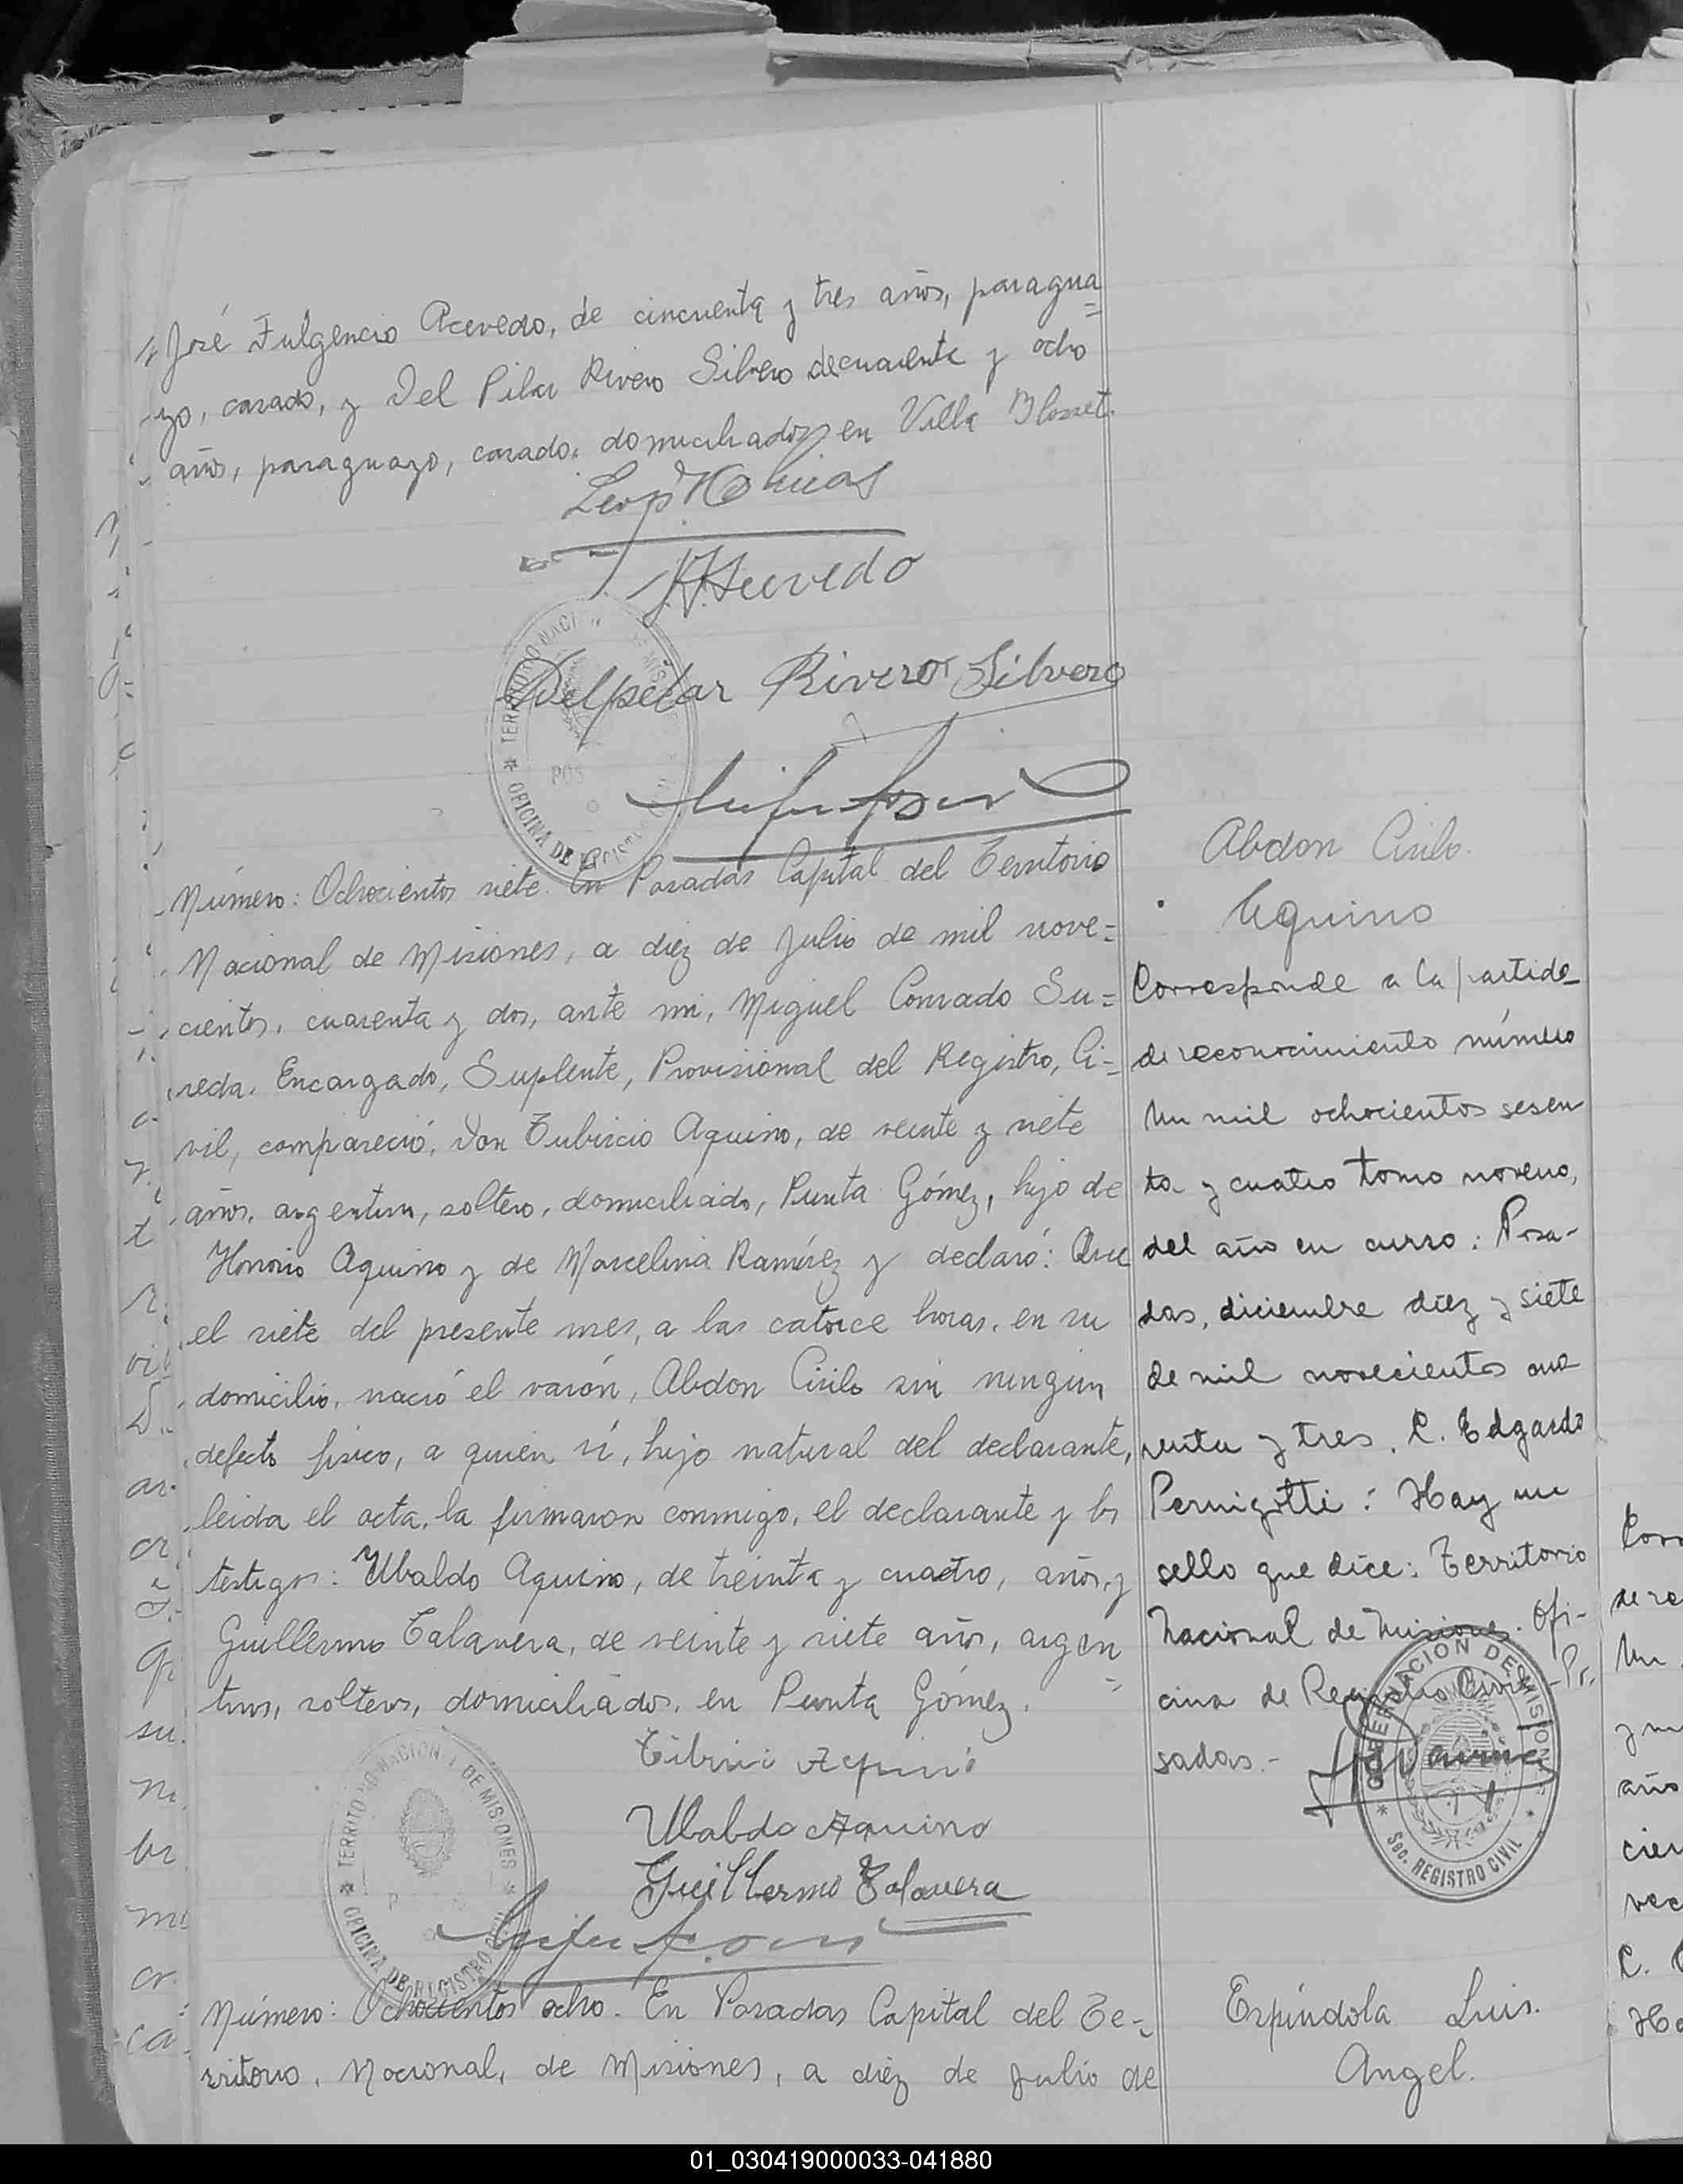 José Fulgencio Acevedo, de cincuenta y tres años, paragua=
yo, casado, y Del Pilar Rivero Silvero de cuarenta y ocho
años, paraguayo, casado, domiciliados en Villa Blosset.
J.F. Acevedo
Delpilar Rivero Silvero
TERRITORIO NACI
OFICINA DE
POS
Número: Ochocientos siete. En Posadas Capital del Territorio
Nacional de Misiones, a diez de Julio de mil nove=
cientos, cuarenta y dos, ante mi, Miguel Conrado Su=
reda. Encargado, Suplente, Provisional del Registro, Ci=
vil, compareció, Don Tubircio Aquino, de veinte y siete
años, argentino, soltero, domiciliado, Punta Gómez, hijo de
Honorio Aquino y de Marcelina Ramírez y declaró: Que
el siete del presente mes, a las catorce horas, en su
domicilio, nació el varón, Abdon Cirilo sin ningún
defecto físico, a quien ví, hijo natural del declarante,
leida el acta, la firmaron conmigo, el declarante y los
testigos: Ubaldo Aquino, de treinta y cuatro, años, y
Guillermo Talavera, de veinte y siete años, argen=
tinos, solteros, domiciliados, en Punta Gómez.
Ubaldo Aquino
Guillermo Talavera
TERRITORIO NACIONAL DE MISIONES
OFICINA DE REGISTRO
Número: Ochocientos ocho. En Posadas Capital del Te=
rritorio, Nacional, de Misiones, a diez de Julio de
Abdon Cirilo.
Aquino
Corresponde a la partida
de reconocimiento número
un mil ochocientos sesen
ta y cuatro tomo noveno,
del año en curso: Posa-
das, diciembre diez y siete
de mil novecientos cua
renta y tres. C. Edgardo
Pernigotti: Hay un
sello que dice: Territorio
Nacional de Misiones. Ofi-
cina de Registro Civil - Po.
sadas.-
GOBERNACION DE MISIONES
Sec. REGISTRO CIVIL
Espíndola Luis.
Angel.
01_030419000033-041880